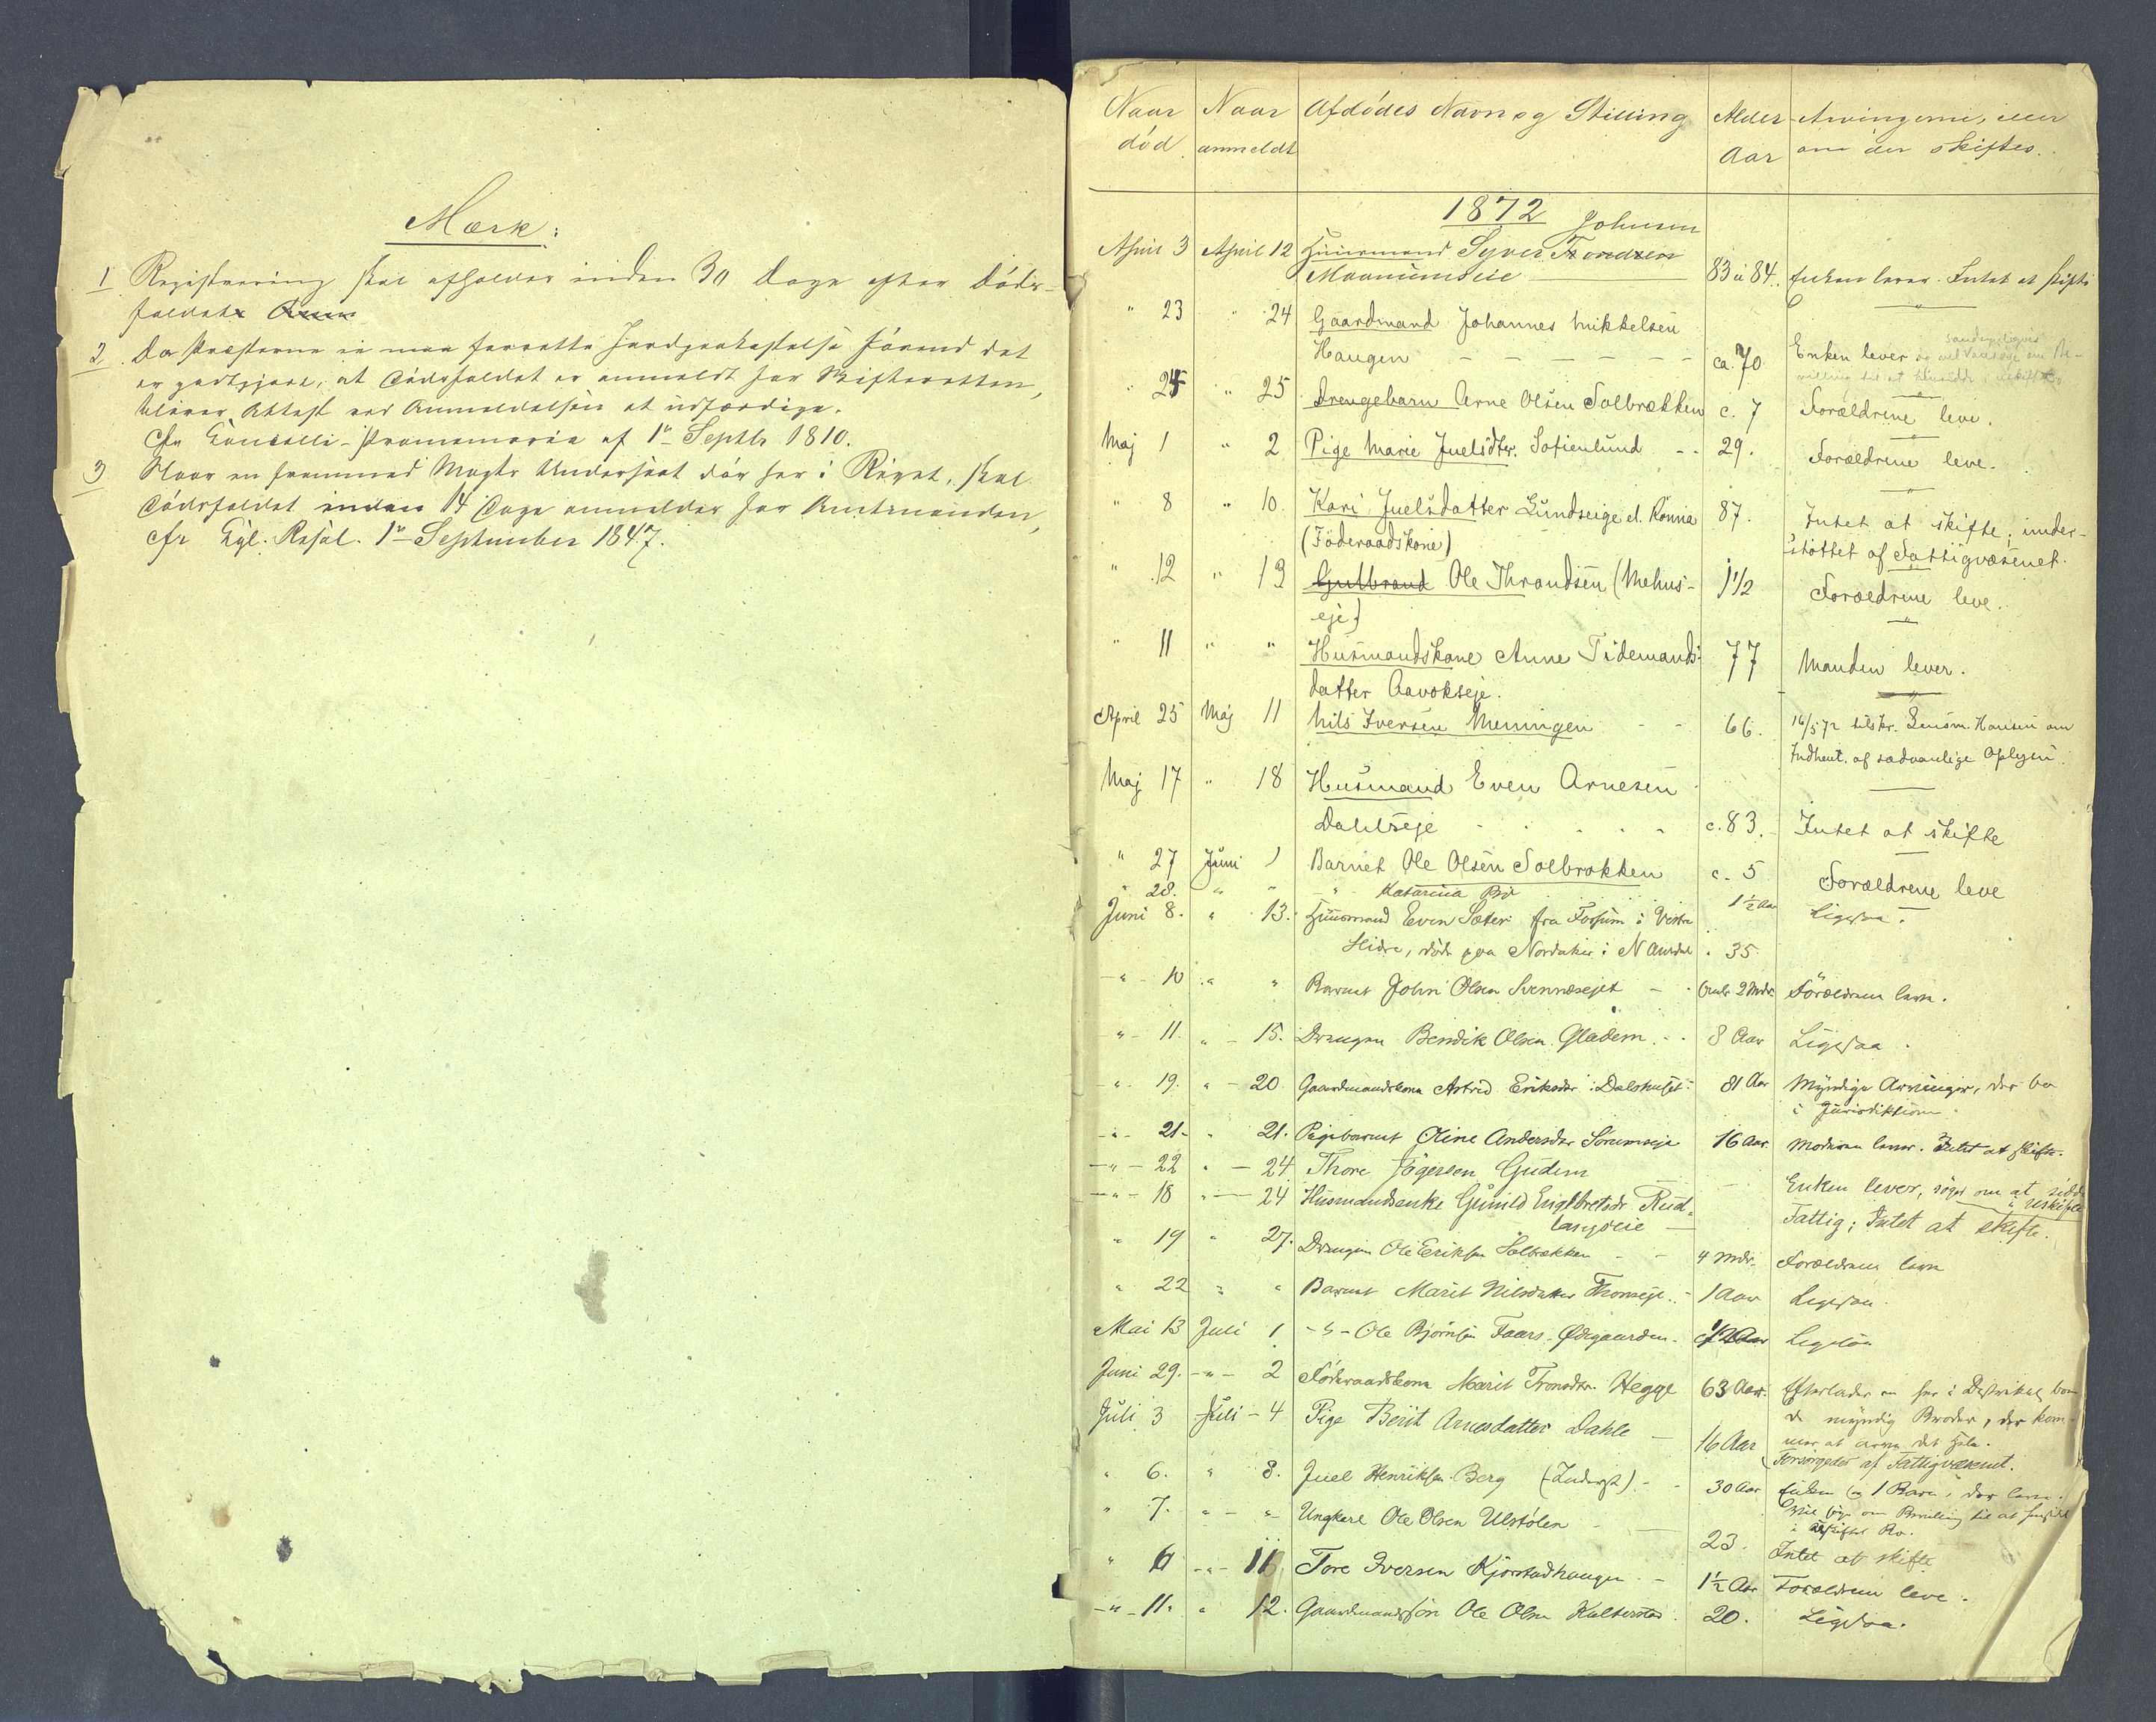 Mærk:
1 Registrering skal afholdes inden 30 Dage efter Døds-
faldet
2. Da Præsterne ei maa forrette Jordpaakastelse førend det
er godtgjort, at Dødsfaldet er anmeldt for Skifteretten,
bliver Attest ved Anmeldelsen at udfærdige.
cfr Cancelli-Promemoria af 1ste Septbr 1810.
3 Naar en fremmed Magts Undersaat dør her i Riget, skal
Dødsfaldet inden 14 Dage anmeldes for Amtmanden,
cfr Kgl. Resol. 1ste September 1847.
Naar død Naar anmeldt Afdødes Navn og Stilling Alder Aar Arvingerne, eller om der skiftes.
1872
Johnsen
April 3 April 12 Huusmand Syver Trondsen
Moanumseie 83 à 84. Enken lever. Intet at skifte
" 23 " 24 Gaardmand Johannes Mikkelsen
Haugen ca. 70 Enken lever
" 25 " 25 Drengebarn Arne Olsen Solbrækken c. 7 Forældrene leve.
Maj 1 " 2 Pige Marie Juelsdtr. Sofienlund 29. Forældrene leve.
" 8 " 10. Kari Juelsdatter Lundseige el. Rønna 87. Intet at skifte; under-
(Föderaadskone) støttet af Fattigvæsenet.
" 12 " 13 Gulbrand Ole Throndsen (Mehus- 1 1/2 Forældrene leve.
eje)
" 11 " " Husmandskone Anne Tidemands- 77 Manden lever.
datter Aavokseje.
April 25 Maj 11 Nils Iversen Meningen 66. 16/5 72 tilskr. Lensm. Hansen om
Indhent. af sædvanlige Oplysn.
Maj 17 " 18 Husmand Even Arnesen
Dahlseje c. 83. Intet at skifte
" 27 Juni 1 Barnet Ole Olsen Solbrækken c. 5 Forældrene leve
" 28. " " " Katarina 1 1/2 Aar Ligesaa.
Juni 8. " 13. Huusmand Even Sæter fra Fossum i Vestre
Slidre, døde paa Nordaker i N Aurdal 35.
" 10 " " Barnet John Olsen Svennesejet 2 Mdr. Forældrene leve.
" 11. " 15. Drengen Bendik Olsen Gladem 8 Aar Ligesaa.
" 19. " 20 Gaardmandskone Astrid Eriksdtr Dalshuset 81 Aar Myndige Arvinger, der bo
i Jurisdiktionen.
" 21. " 21. Pigebarnet Oline Andersdtr Sørumseje 16 Aar. Moderen lever. Intet at skifte.
" 22 " 24. Thore Jögersen Gudem Enken lever, søger om at sidde
i uskifte
" 18 " 24 Husmandsenke Gunild Englbretsdr Rud- Fattig; Intet at skifte.
langseie
" 19 " 27. Drengen Ole Eriksen Solbrækken 4 Mdr. Forældrene leve
" 22 " " Barnet Marit Nilsdatter Thorseje 1 Aar Ligesaa.
Mai 13 Juli 1 " Ole Bjørnsen Faars. Ødegaarden 1/2 Aar Ligesaa
Juni 29. " 2 Föderaadskone Marit Tronsdtr. Hegge 63 Aar. Efterlader en her i Distriktet boen-
de myndig Broder, der kom-
mer at arve det Hele.
Juli 3 Juli 4 Pige Berit Arnesdatter Dahle 16 Aar Forsørgedes af Fattigvæsenet.
" 6. " 8. Juel Henriksen Berg (Inderst) 30 Aar Enken og 1 Barn, der leve.
Vil søge om Bevilling til at hensidde
i uskiftet Bo.
" 7. " " Ungkarl Ole Olsen Ulstølen 23. Intet at skifte
" 6 " 11 Tore Iversen Kjørstadhaugen 1 1/2 Aar Forældrene leve.
" 11. " 12. Gaardmandssøn Ole Olsen Kultersta 20. Ligesaa.